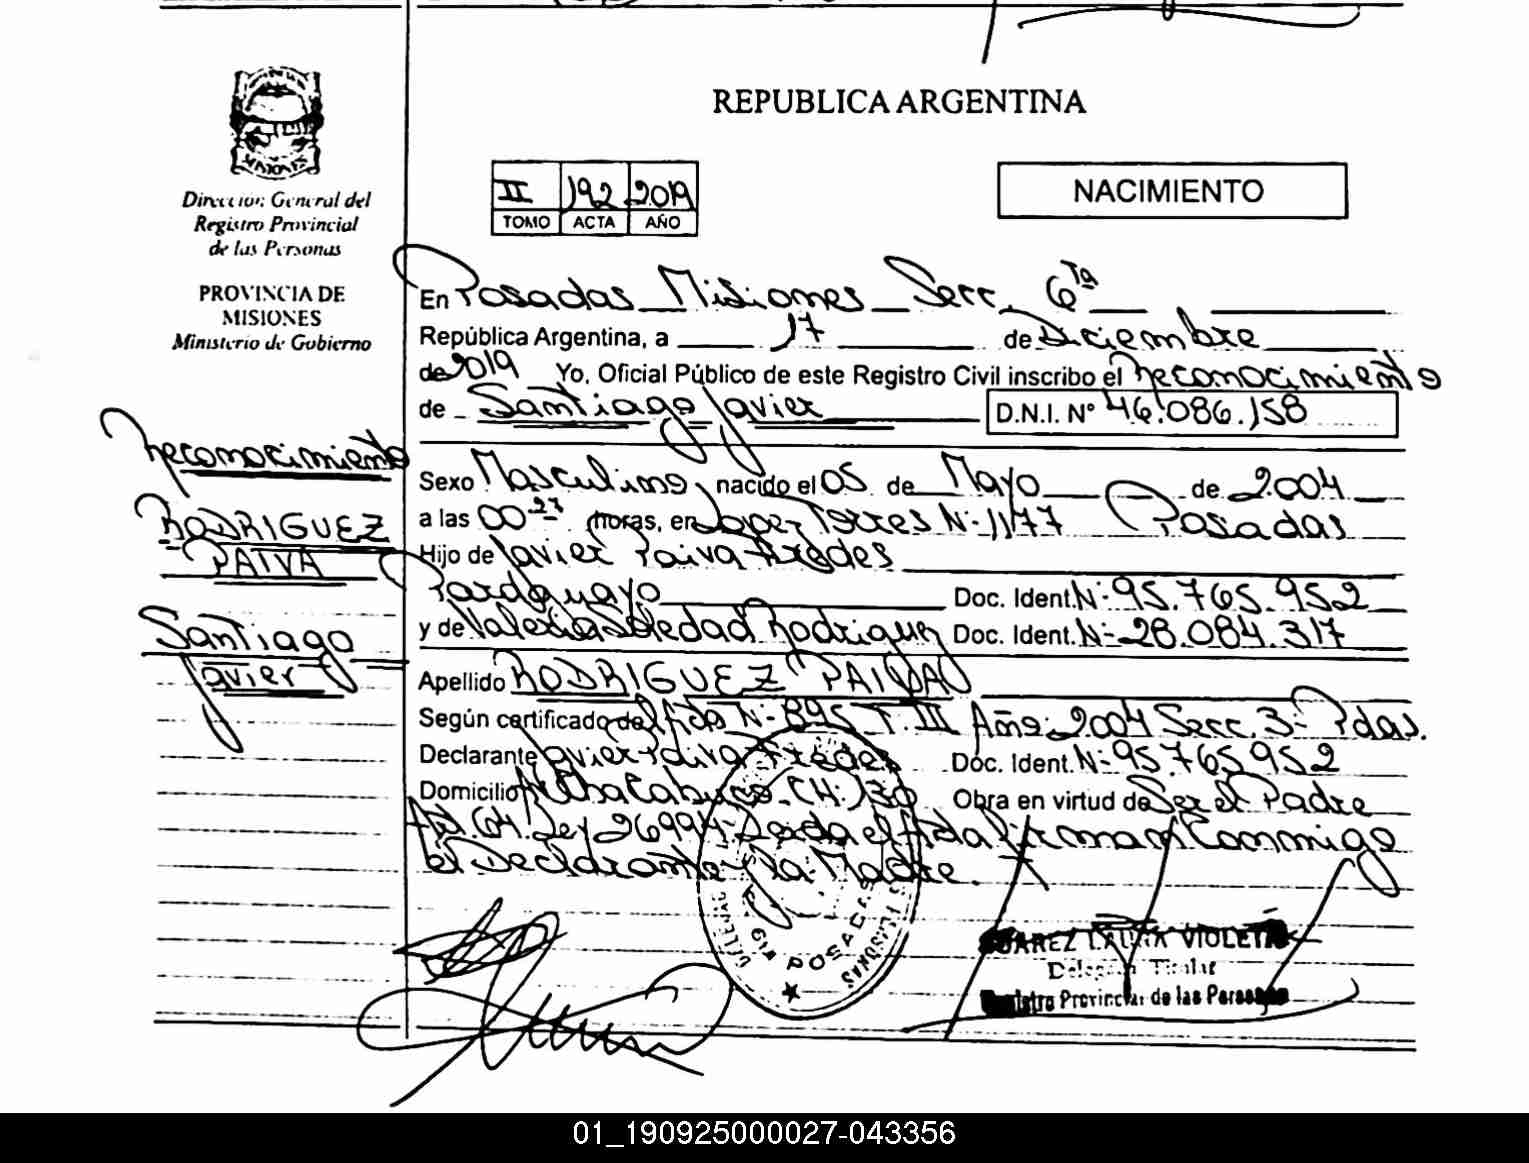 REPUBLICA ARGENTINA
Dirección General del
Registro Provincial
de las Personas
PROVINCIA DE
MISIONES
Ministerio de Gobierno
II 192 2019
TOMO ACTA AÑO
NACIMIENTO
En Posadas Misiones Secc. 6ta
República Argentina, a 17 de Diciembre
de 2019 Yo, Oficial Público de este Registro Civil inscribo el Reconocimiento
de Santiago Javier D.N.I. Nº 46.086.158
Reconocimiento
RODRIGUEZ
PAIVA
Santiago
Javier
Sexo Masculino nacido el 05 de Mayo de 2004
a las 00 27 horas, en Lopez Torres N-1177 Posadas
Hijo de Javier Paiva Aredes
Paraguayo Doc. Ident. N- 95.765.952
y de Valeria Soledad Rodriguez Doc. Ident. N- 28.084.317
Apellido RODRIGUEZ PAIVA
Según certificado de Acta N- 895 T. III Año: 2004 Secc. 3- Pdas.
Declarante Javier Paiva Aredes Doc. Ident. N- 95.765.952
Domicilio Chacabuco CH. 130 Obra en virtud de Ser el Padre
Art. 64. Ley 26994 el Acta firman Conmigo
el Declarante y la Madre.
POSADAS
SUAREZ LAURA VIOLETA
Delegada Titular
Registro Provincial de las Personas
01_190925000027-043356